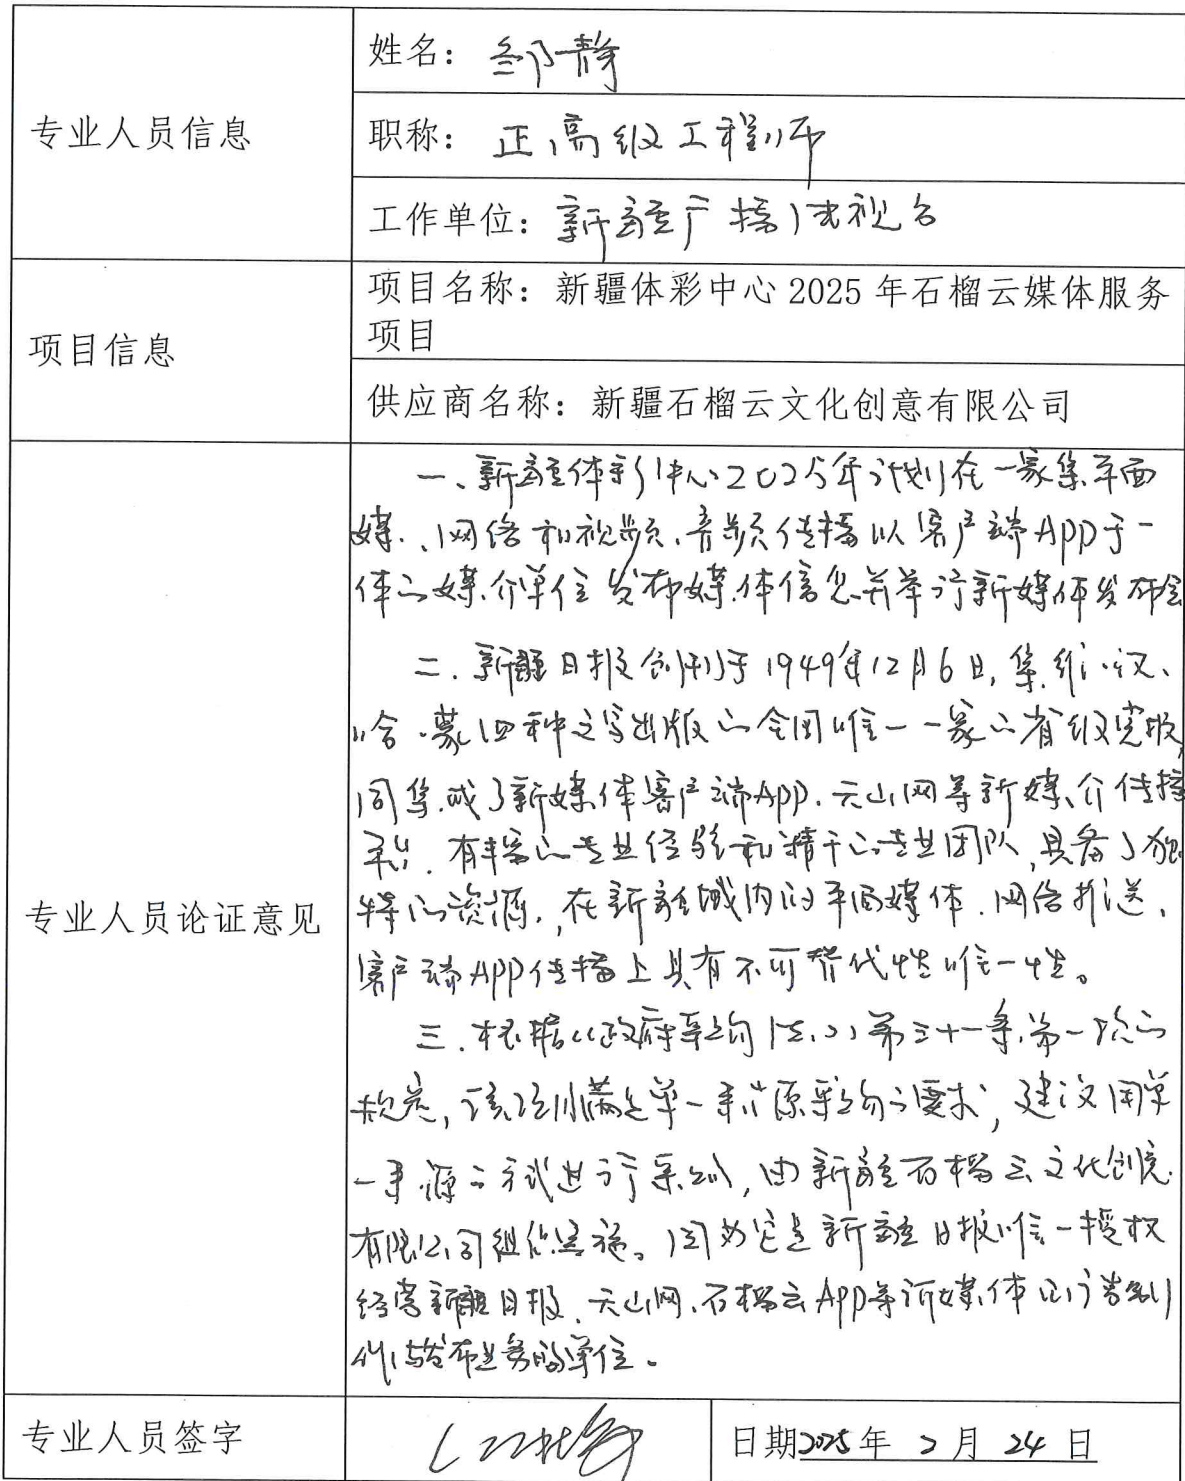 专业人员信息
姓名：邹静
职称：正高级工程师
工作单位：新疆广播电视台
项目信息
项目名称：新疆体彩中心2025年石榴云媒体服务
项目
供应商名称：新疆石榴云文化创意有限公司
专业人员论证意见
一、新疆体彩中心2025年计划在一家集平面
媒、网络和视频、音频传播以客户端APP于一
体的媒介单位发布媒体信息并举行新媒体发布会
二.新疆日报创刊于1949年12月6日,集维、汉、
哈、蒙四种文字出版的全国唯一一家的省级党报,
同集成了新媒体客户端App.天山网等新媒介传播
平台.有丰富的专业经验和精干的专业团队,具备了独
特的资源,在新疆域内的平面媒体.网络推送、
客户端APP传播上具有不可替代性唯一性。
三.根据《政府采购法》第三十一条第一款的
规定,该项目满足单一来源采购的要求,建议用单
一来源的方式进行采购,由新疆石榴云文化创意
有限公司组织实施。因为它是新疆日报唯一授权
经营新疆日报、天山网、石榴云App等新媒体的广告制
作与发布业务的单位。
专业人员签字
日期2025年2月24日